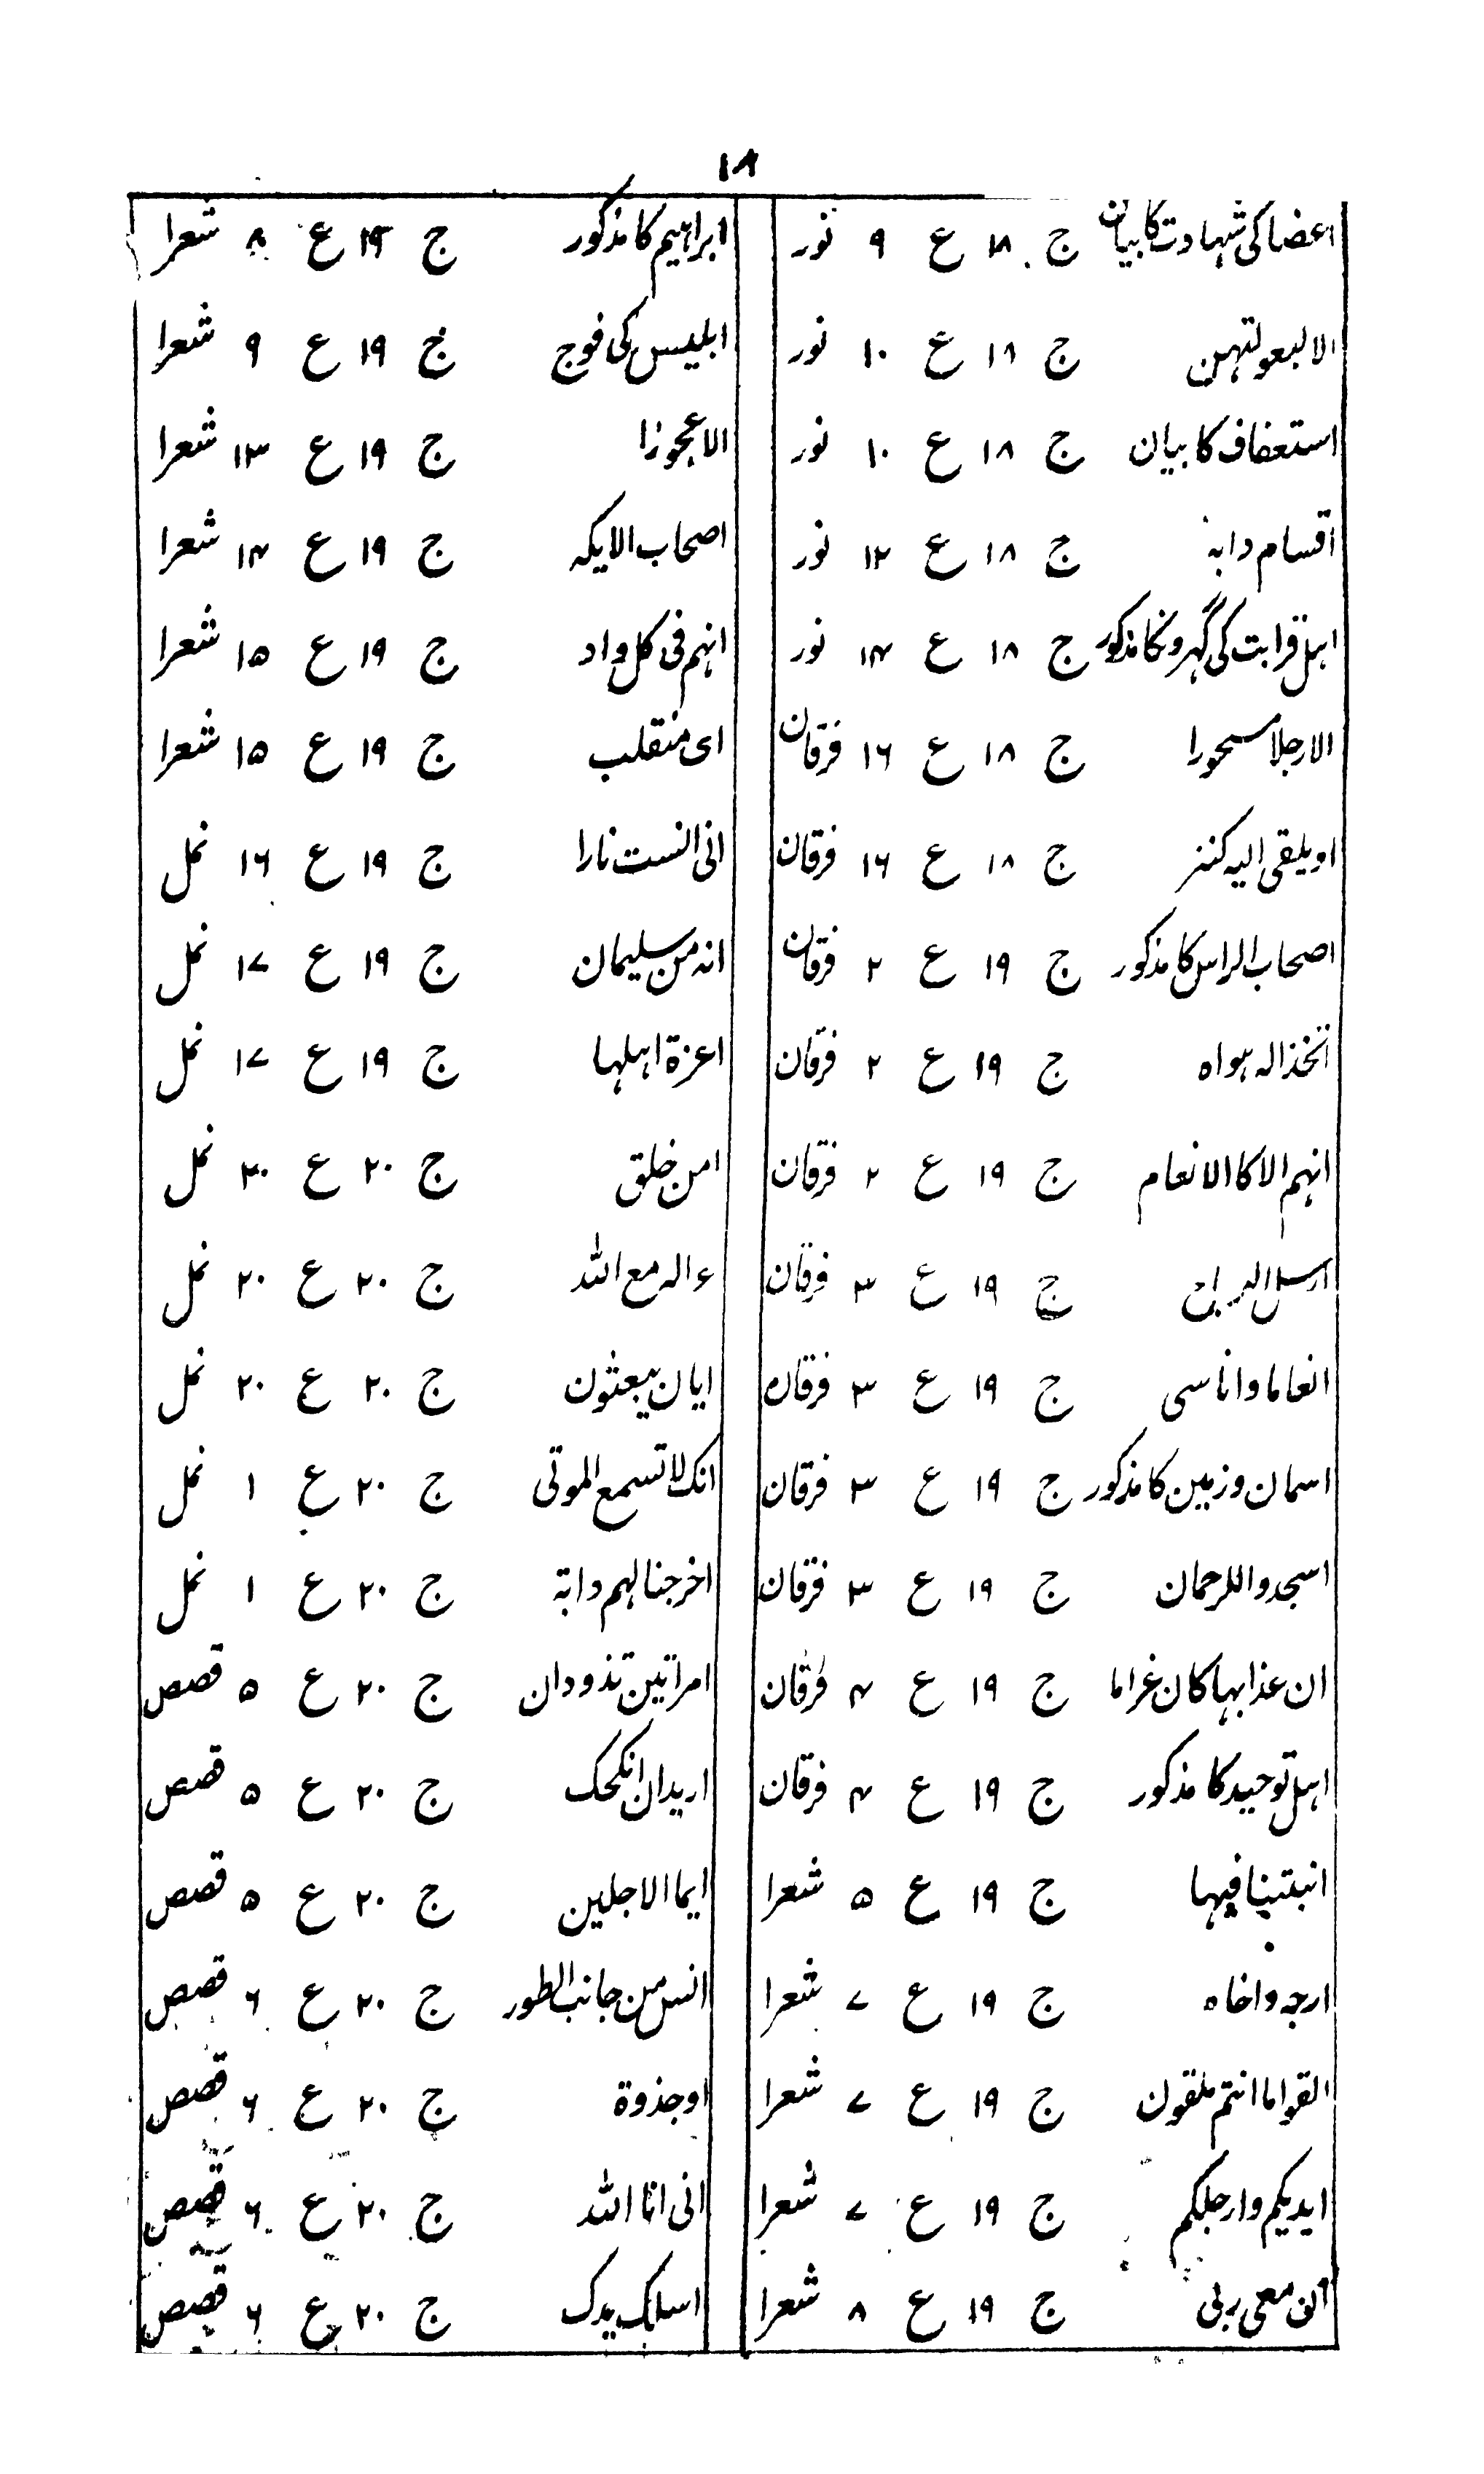 ۱۸
اعضا کی شہادت کا بیان ج ۱۸ ع ۹ نور
الا لبعولتہن ج ۱۸ ع ۱۰ نور
استعفاف کا بیان ج ۱۸ ع ۱۰ نور
اقسام دابہ ج ۱۸ ع ۱۲ نور
اہل قرابت کی گہرونکا مذکور ج ۱۸ ع ۱۴ نور
الا رجلا مسحورا ج ۱۸ ع ۱۶ فرقان
او یلقی الیہ کنز ج ۱۸ ع ۱۶ فرقان
اصحاب الراس کا مذکور ج ۱۹ ع ۲ فرقان
اتخذ الہ ہواہ ج ۱۹ ع ۲ فرقان
انہم الا کا الانعام ج ۱۹ ع ۲ فرقان
ارسل الریاح ج ۱۹ ع ۳ فرقان
انعاما و اناسی ج ۱۹ ع ۳ فرقان
اسمان و زمین کا مذکور ج ۱۹ ع ۳ فرقان
اسجدوا للرحمان ج ۱۹ ع ۳ فرقان
ان عذابہا کان غراما ج ۱۹ ع ۴ فرقان
اہل توحید کا مذکور ج ۱۹ ع ۴ فرقان
انبتینا فیہا ج ۱۹ ع ۵ شعرا
ارجہ و اخاہ ج ۱۹ ع ۷ شعرا
القوا ما انتم ملقون ج ۱۹ ع ۷ شعرا
ایدیکم و ارجلکم ج ۱۹ ع ۷ شعرا
معی ربی ج ۱۹ ع ۸ شعرا
ابراہیم کا مذکور ج ۱۹ ع ۸ شعرا
ابلیس کی فوج ج ۱۹ ع ۹ شعرا
الا عجوزا ج ۱۹ ع ۱۳ شعرا
اصحاب الایکہ ج ۱۹ ع ۱۴ شعرا
انہم فی کل واد ج ۱۹ ع ۱۵ شعرا
ای منقلب ج ۱۹ ع ۱۵ شعرا
انی انست نارا ج ۱۹ ع ۱۶ نمل
انہ من سلیمان ج ۱۹ ع ۱۷ نمل
اعزۃ اہلہا ج ۱۹ ع ۱۷ نمل
امن خلق ج ۲۰ ع ۲۰ نمل
ءالہ مع اللہ ج ۲۰ ع ۲۰ نمل
ایان یبعثون ج ۲۰ ع ۲۰ نمل
انک لا تسمع الموتی ج ۲۰ ع ۱ نمل
اخرجنا لہم دابۃ ج ۲۰ ع ۱ نمل
امراتین تذودان ج ۲۰ ع ۵ قصص
ارید ان انکحک ج ۲۰ ع ۵ قصص
ایما الاجلین ج ۲۰ ع ۵ قصص
انس من جانب الطور ج ۲۰ ع ۶ قصص
او جذوۃ ج ۲۰ ع ۶ قصص
انی انا اللہ ج ۲۰ ع ۶ قصص
اسلک یدک ج ۲۰ ع ۶ قصص